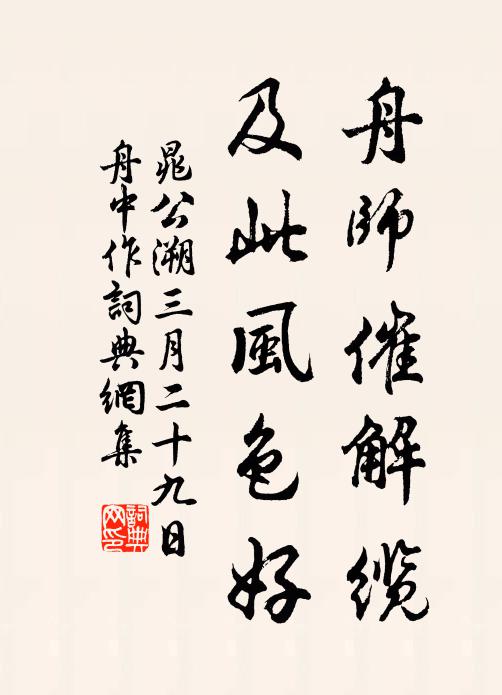 舟師催解纜
及此風色好
晁公溯三月二十九日
舟中作詞典網集
詞典
网印